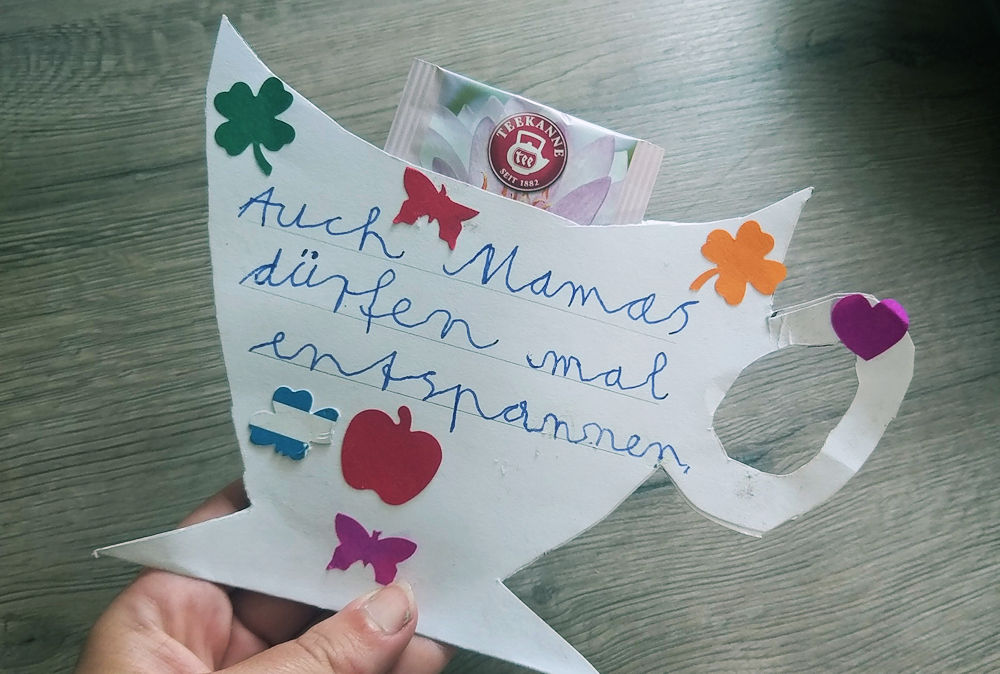 TEEKANNE
tee
SEIT 1882
Auch Mamas
dürfen mal
entspannen.